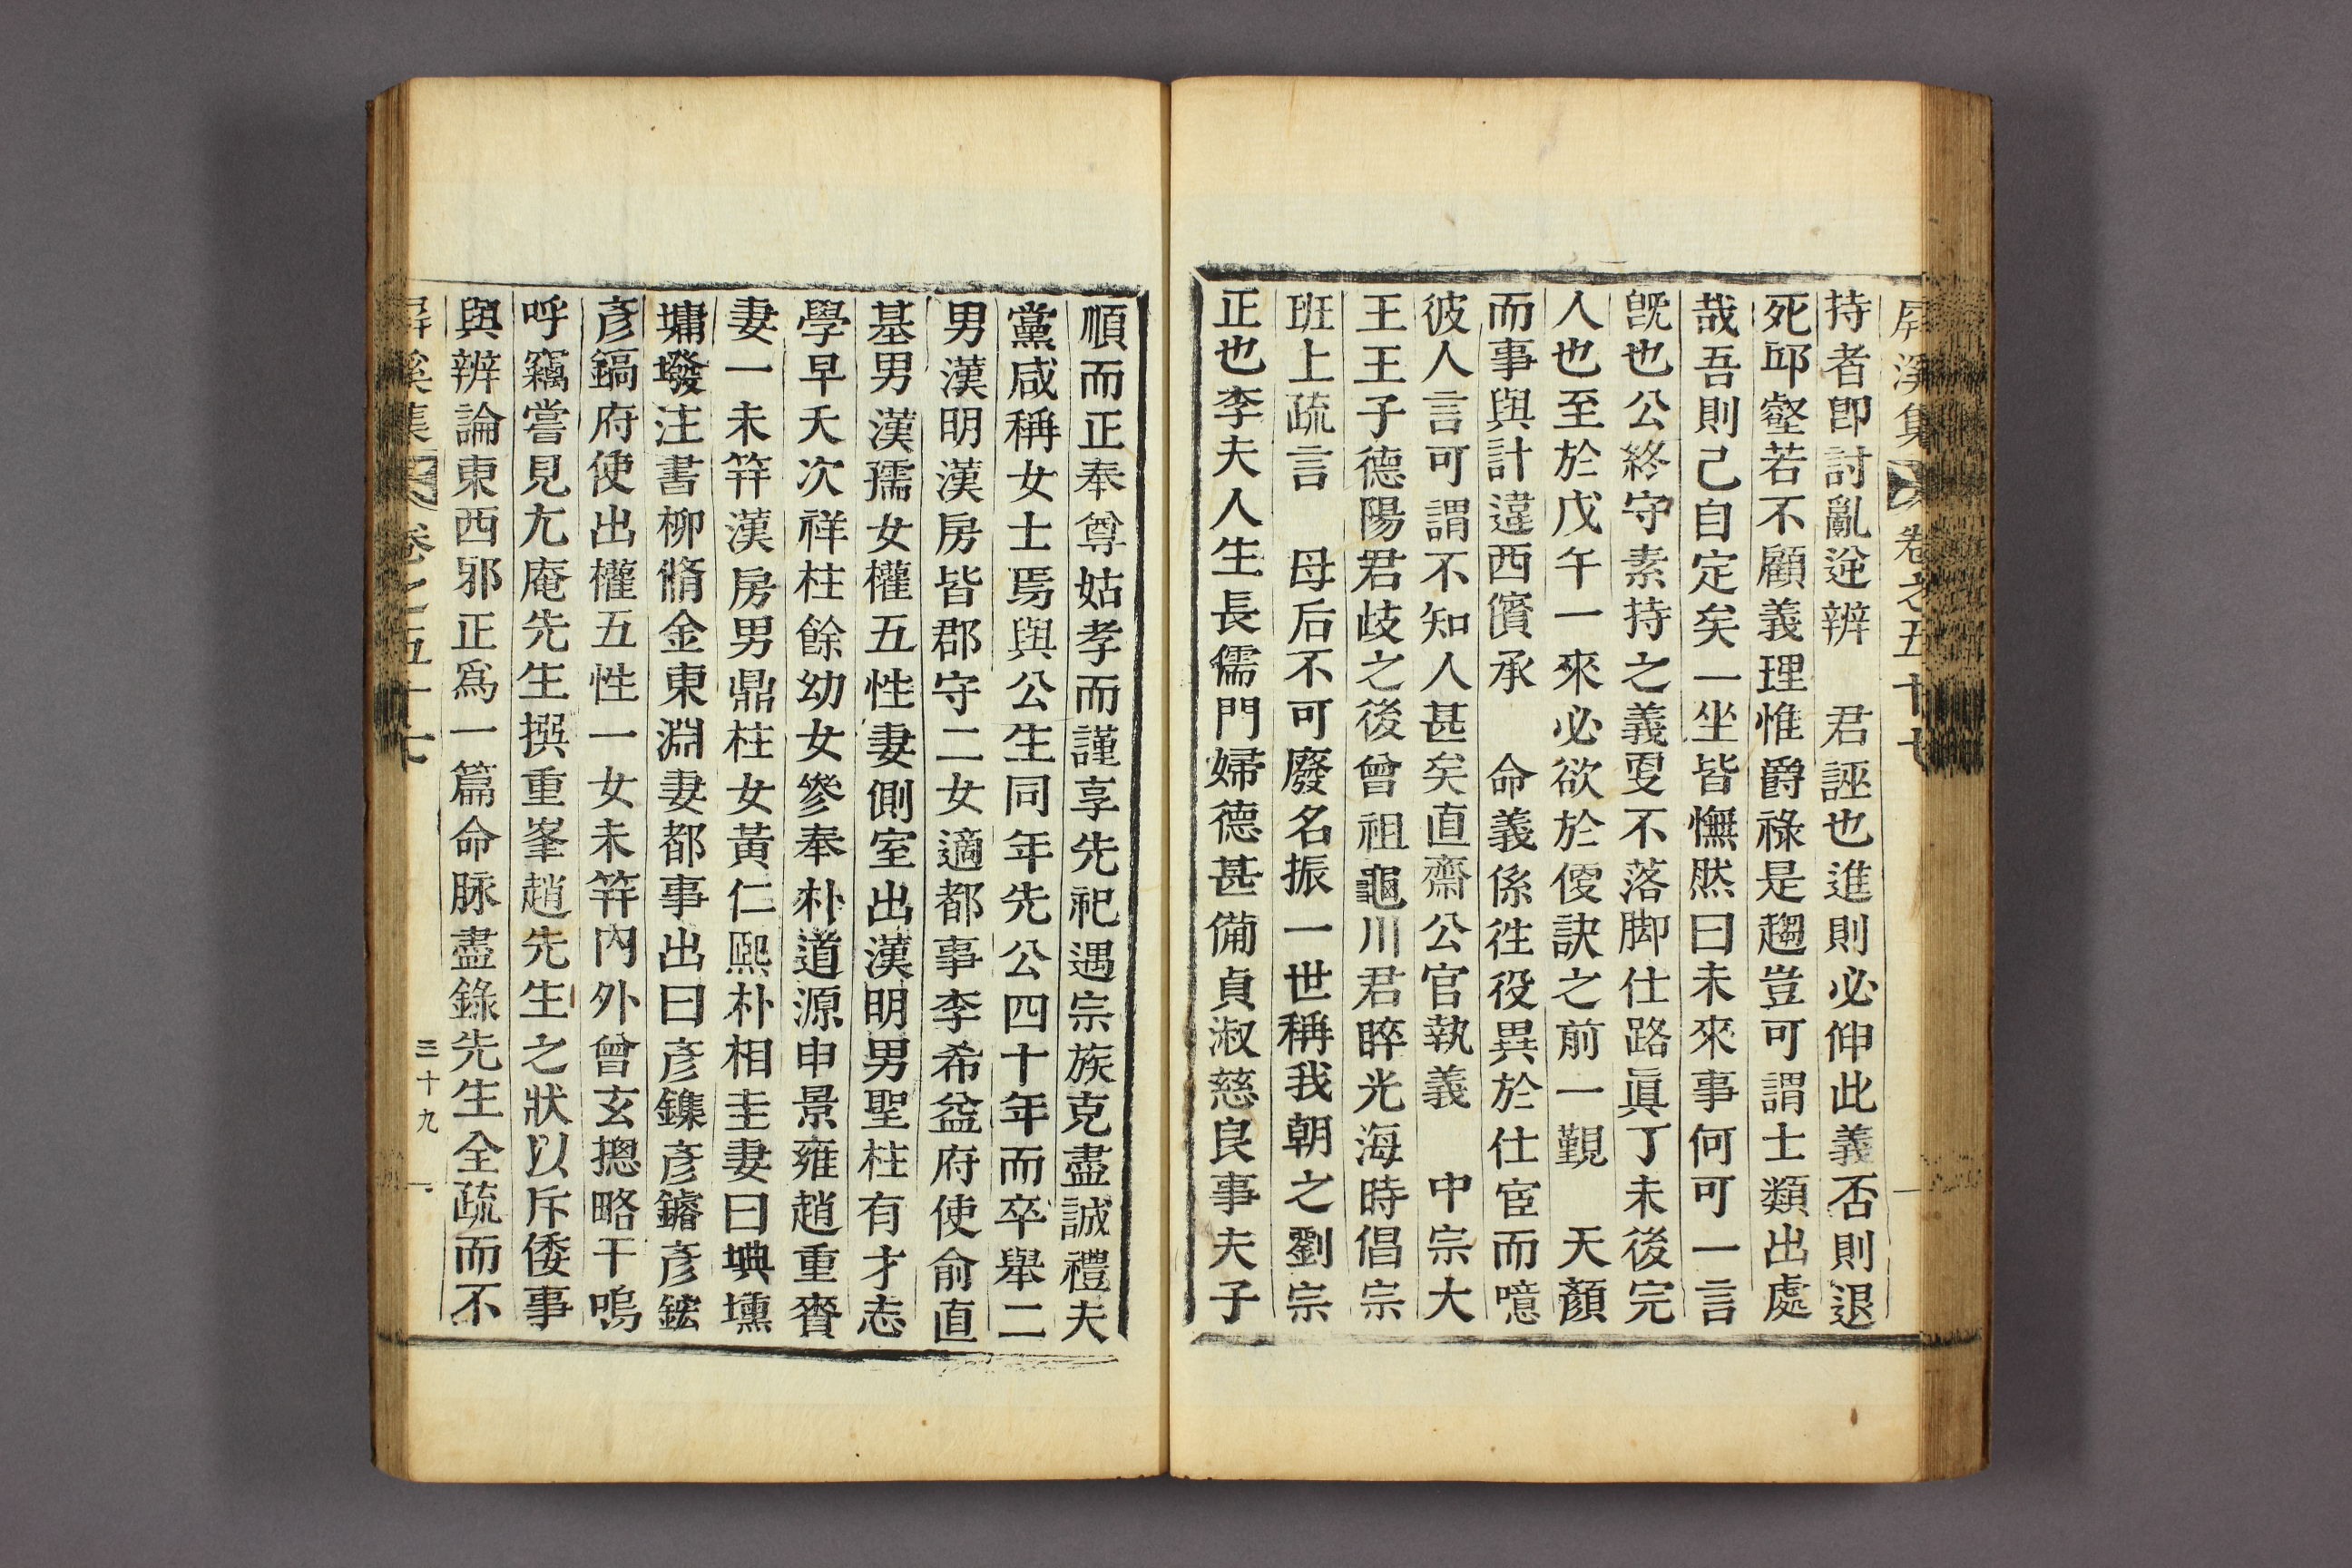 屛溪集 卷之五十七
持者卽討亂逆辨 君誣也進則必伸此義否則退
死邱壑若不顧義理惟爵祿是趨豈可謂士類出處
哉吾則己自定矣一坐皆憮然曰未來事何可一言
旣也公終守素持之義更不落脚仕路眞丁未後完
人也至於戊午一來必欲於便訣之前一覲 天顏
而事與計違西儐承 命義係往役異於仕宦而噫
彼人言可謂不知人甚矣直齋公官執義 中宗大
王王子德陽君歧之後曾祖龜川君睟光海時倡宗
班上疏言 母后不可廢名振一世稱我朝之劉宗
正也李夫人生長儒門婦德甚備貞淑慈良事夫子
順而正奉尊姑孝而謹享先祀遇宗族克盡誠禮夫
黨咸稱女士焉與公生同年先公四十年而卒擧二
男漢明漢房皆郡守二女適都事李希益府使俞直
基男漢孺女權五性妻側室出漢明男聖柱有才志
學早夭次祥柱餘幼女參奉朴道源申景雍趙重賚
妻一未笄漢房男鼎柱女黃仁熙朴相圭妻曰㙉壎
墉墢注書柳脩金東淵妻都事出曰彦鏶彦鐼彦鋐
彦鎬府使出權五性一女未笄內外曾玄摠略干嗚
呼竊嘗見尤庵先生撰重峯趙先生之狀以斥倭事
與辨論東西邪正爲一篇命脉盡錄先生全疏而不
屛溪集 卷之五十七 三十九